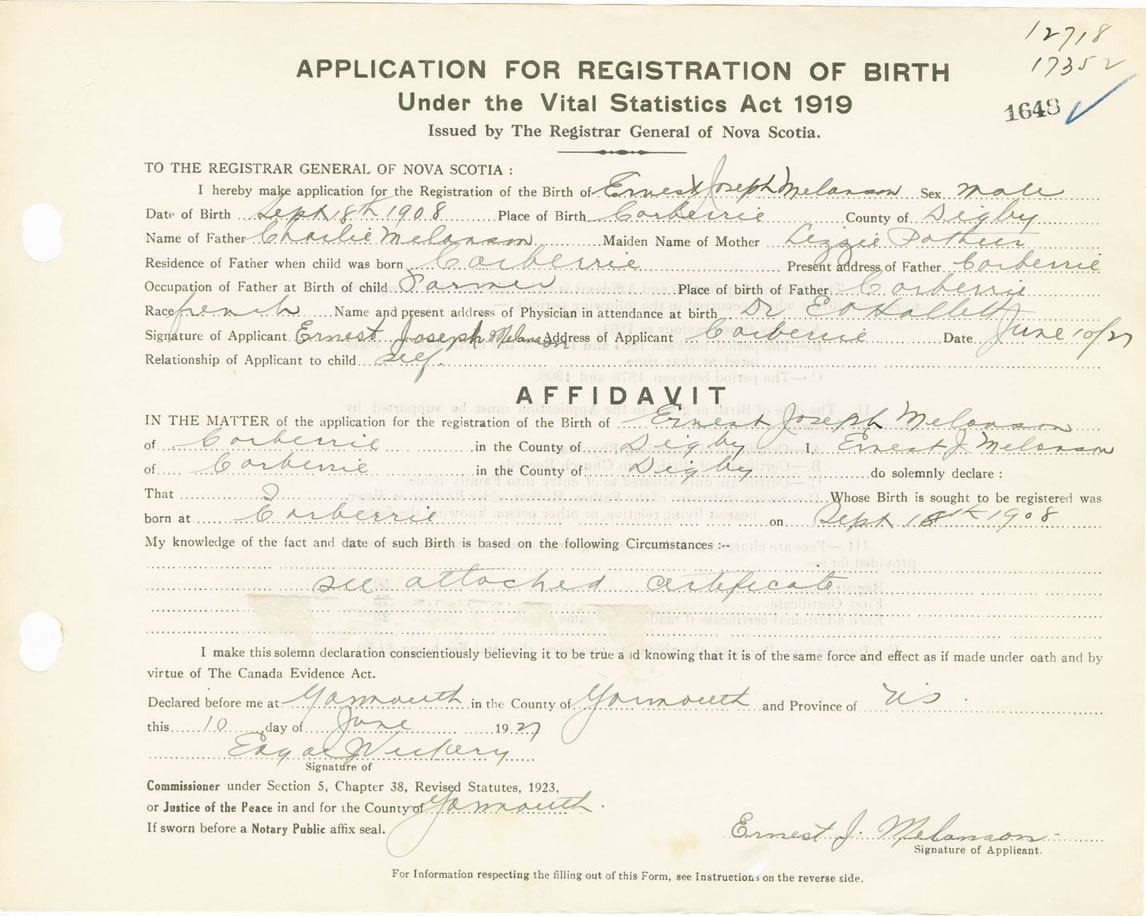 12718
17352
1648
APPLICATION FOR REGISTRATION OF BIRTH
Under the Vital Statistics Act 1919
Issued by The Registrar General of Nova Scotia.
TO THE REGISTRAR GENERAL OF NOVA SCOTIA :
I hereby make application for the Registration of the Birth of Ernest Joseph Melanson Sex male
Date of Birth Sept 18th 1908 Place of Birth Corberrie County of Digby
Name of Father Charlie Melanson Maiden Name of Mother Lizzie Pothier
Residence of Father when child was born Corberrie Present address of Father Corberrie
Occupation of Father at Birth of child Farmer Place of birth of Father Corberrie
Race french Name and present address of Physician in attendance at birth Dr.
Signature of Applicant Ernest Joseph Melanson Address of Applicant Corberrie Date June 10/27
Relationship of Applicant to child self.
AFFIDAVIT
IN THE MATTER of the application for the registration of Birth of Ernest Joseph Melanson
of Corberrie in the County of Digby I, Ernest J Melanson
of Corberrie in the County of Digby do solemnly declare :
That I Whose Birth is sought to be registered was
born at Corberrie on Sept 18th 1908
My knowledge of the fact and date of such Birth is based on the following Circumstances :--
see attached certificate
I make this solemn declaration conscientiously believing it to be true and knowing that it is of the same force and effect as if made under oath and by
virtue of The Canada Evidence Act.
Declared before me at Yarmouth in the County of Yarmouth and Province of NS.
this 10 day of June 1927
Edgar Vickery
Signature of
Commissioner under Section 5, Chapter 38, Revised Statutes, 1923,
or Justice of the Peace in and for the County of Yarmouth.
If sworn before a Notary Public affix seal.
Ernest J. Melanson
Signature of Applicant.
For Information respecting the filling out of this Form, see Instructions on the reverse side.